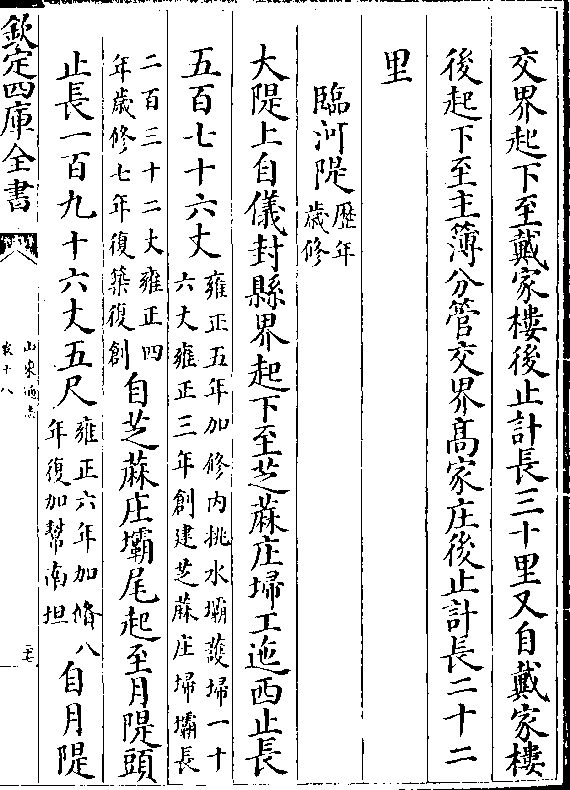 交界起下至戴家樓後止計長三十里又自戴家樓
後起下至主簿分管交界髙家庄後止計長二十二
里
臨河隄歷年歲修
大隄上自儀封縣界起下至芝蔴庄埽工迤西止長
五百七十六丈雍正五年加修内挑水壩護埽一十六丈雍正三年創建芝蔴庄埽壩長
二百三十二丈雍正四年歲修七年復築復創自芝蔴庄壩尾起至月隄頭
止長一百九十六丈五尺雍正六年加脩八年復加幫南坦自月隄
欽定四庫全書
山東通志
卷十八